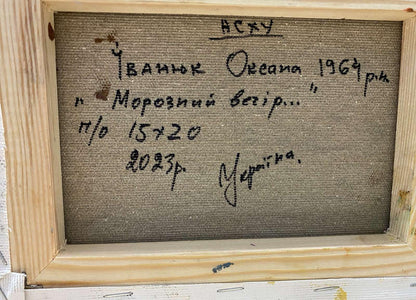 НСХУ
Іванюк Оксана 1964 р.н.
„ Морозний вечір... "
п/о 15х20
2023р.
Україна.